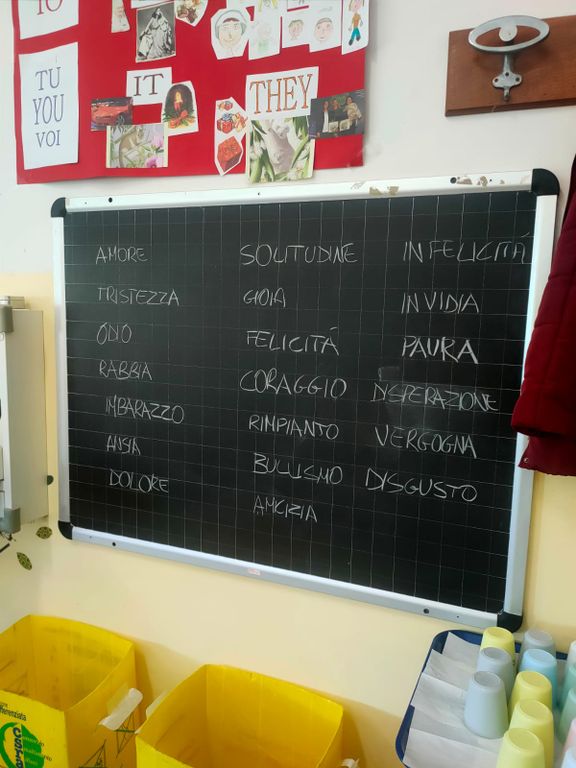 IO
TÚ
YOU
VOI
IT
THEY
AMORE
TRISTEZZA
ODIO
RABBIA
IMBARAZZO
ANSIA
DOLORE
SOLITUDINE
GIOIA
FELICITÁ
CORAGGIO
RIMPIANTO
BULLISMO
AMICIZIA
INFELICITÁ
INVIDIA
PAURA
DISPERAZIONE
VERGOGNA
DISGUSTO